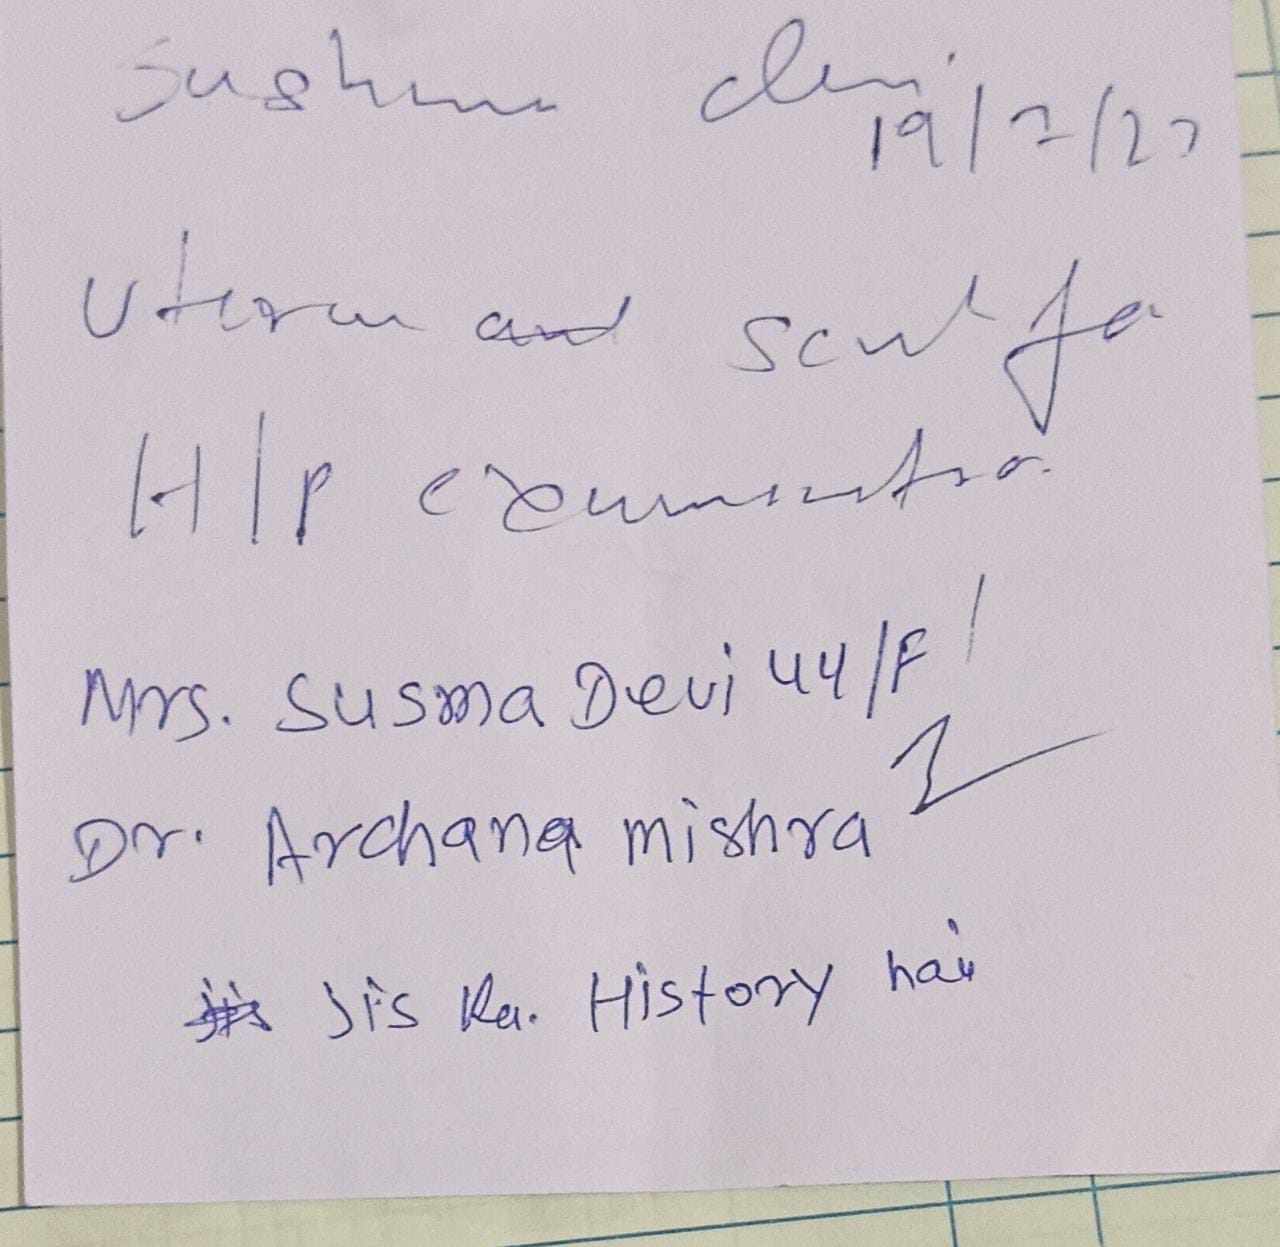 Sushma devi
19/7/23
Uterus and sent for
H/p examination
Mrs. Susma Devi 44/F
Dr. Archana mishra
Jis ka. History hai